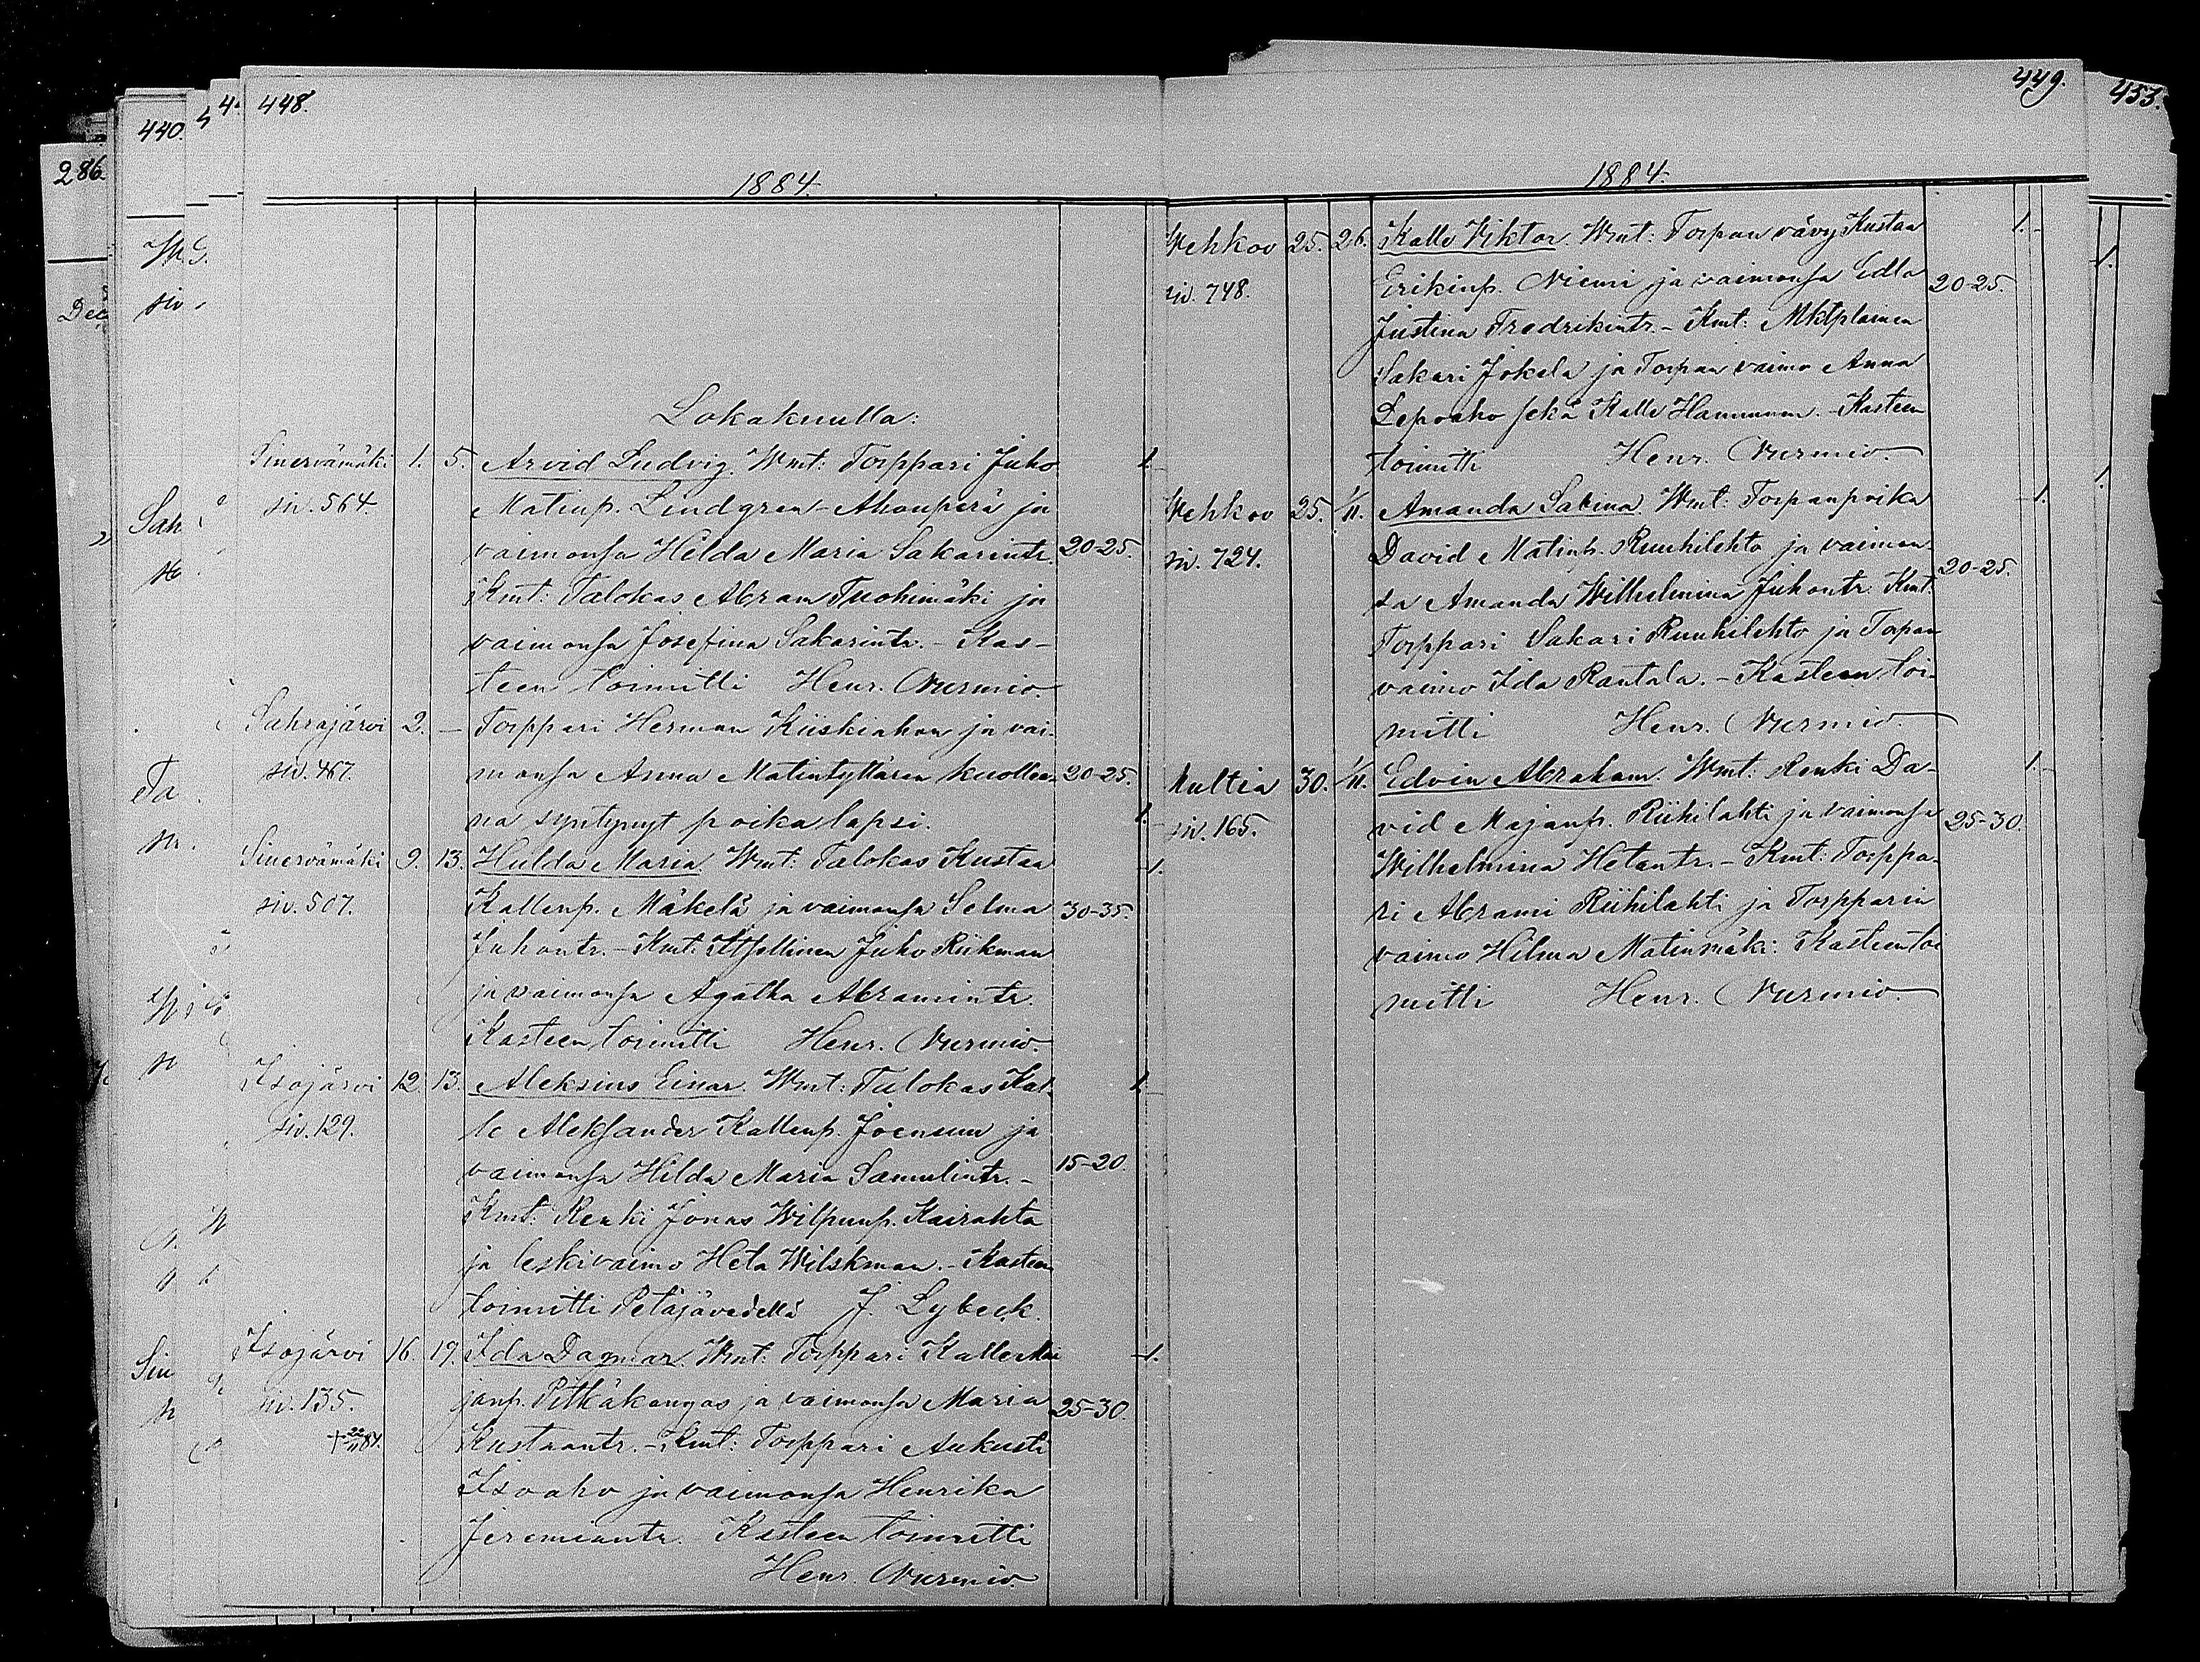 448.
1884.
Lokakuulla:
Sinervämäki 1. 5. Arvid Ludvig. Wmt: Torppari Juho 1.
siv. 564. Matinp. Lindgren-Ahonperä ja
vaimonsa Hilda Maria Sakarintr. 20-25.
Kmt: Talokas Abram Tuohimäki ja
vaimonsa Josefina Sakarintr. - Kas-
teen toimitti Henr. Nurmio.
Sahrajärvi 2. - Torppari Herman Kiiskiahon ja vai-
siv. 467. monsa Anna Matintyttären kuollee- 20-25.
na syntynyt poikalapsi. 1.
Sinervämäki 9. 13. Hulda Maria. Wmt: Talokas Kustaa 1.
siv. 507. Kallenp. Mäkelä ja vaimonsa Selma 30-35.
Juhontr. - Kmt: Itsellinen Juho Riikman
ja vaimonsa Agatha Abramintr.
Kasteen toimitti Henr. Nurmio.
Isojärvi 12. 13. Aleksius Einar. Wmt: Talokas Kal- 1.
siv. 129. le Aleksander Kallenp. Joensuu ja
vaimonsa Hilda Maria Samulintr. - 15-20.
Kmt: Renki Jonas Wilpunp. Kairahta
ja leskivaimo Heta Wilskman. - Kasteen
toimitti Petäjävedellä J. Lybeck.
Isojärvi 16. 19. Ida Dagmar. Wmt: Torppari Kalle Ma- 1.
siv. 135. janp. Pitkäkangas ja vaimonsa Maria 25-30.
Kustaantr. - Kmt: Torppari Aukusti
Isoaho ja vaimonsa Henrika
Jeremiantr. Kasteen toimitti
Henr. Nurmio.
449.
1884.
Wehkoo 25. 26. Kalle Viktor. Wmt: Torpan vävy Kustaa 1.
siv. 748. Erikinp. Niemi ja vaimonsa Edla 20-25.
Justina Fredrikintr. - Kmt: Mktplainen
Sakari Jokela ja Torpan vaimo Anna
Lepoaho sekä Kalle Hannunen. - Kasteen
toimitti Henr. Nurmio.
Wehkoo 25. 1/11. Amanda Sabina. Wmt: Torpanpoika 1.
siv. 724. David Matinp. Ruuhilehto ja vaimon-
sa Amanda Wilhelmina Juhontr. Kmt: 20-25.
Torppari Sakari Ruuhilehto ja Torpan
vaimo Ida Rantala. - Kasteen toi-
mitti Henr. Nurmio.
Multia 30. 1/11. Edvin Abraham. Wmt: Renki Da- 1.
siv. 165. vid Majanp. Riihilahti ja vaimonsa 25-30.
Wilhelmina Hetantr. - Kmt: Torppa-
ri Abrami Riihilahti ja Torpparin
vaimo Hilma Matinmäki. Kasteen toi
mitti Henr. Nurmio.
453.
440.
286.